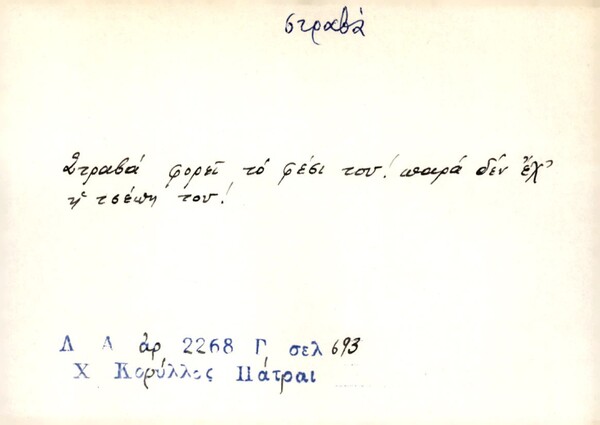 στραβά
Στραβά φορεῖ τό φέσι του! παρά δέν ἔχ'
ἡ τσέπη του!
Λ Α ἀρ 2268 Γ σελ 693
Χ Κορύλλος Πάτραι